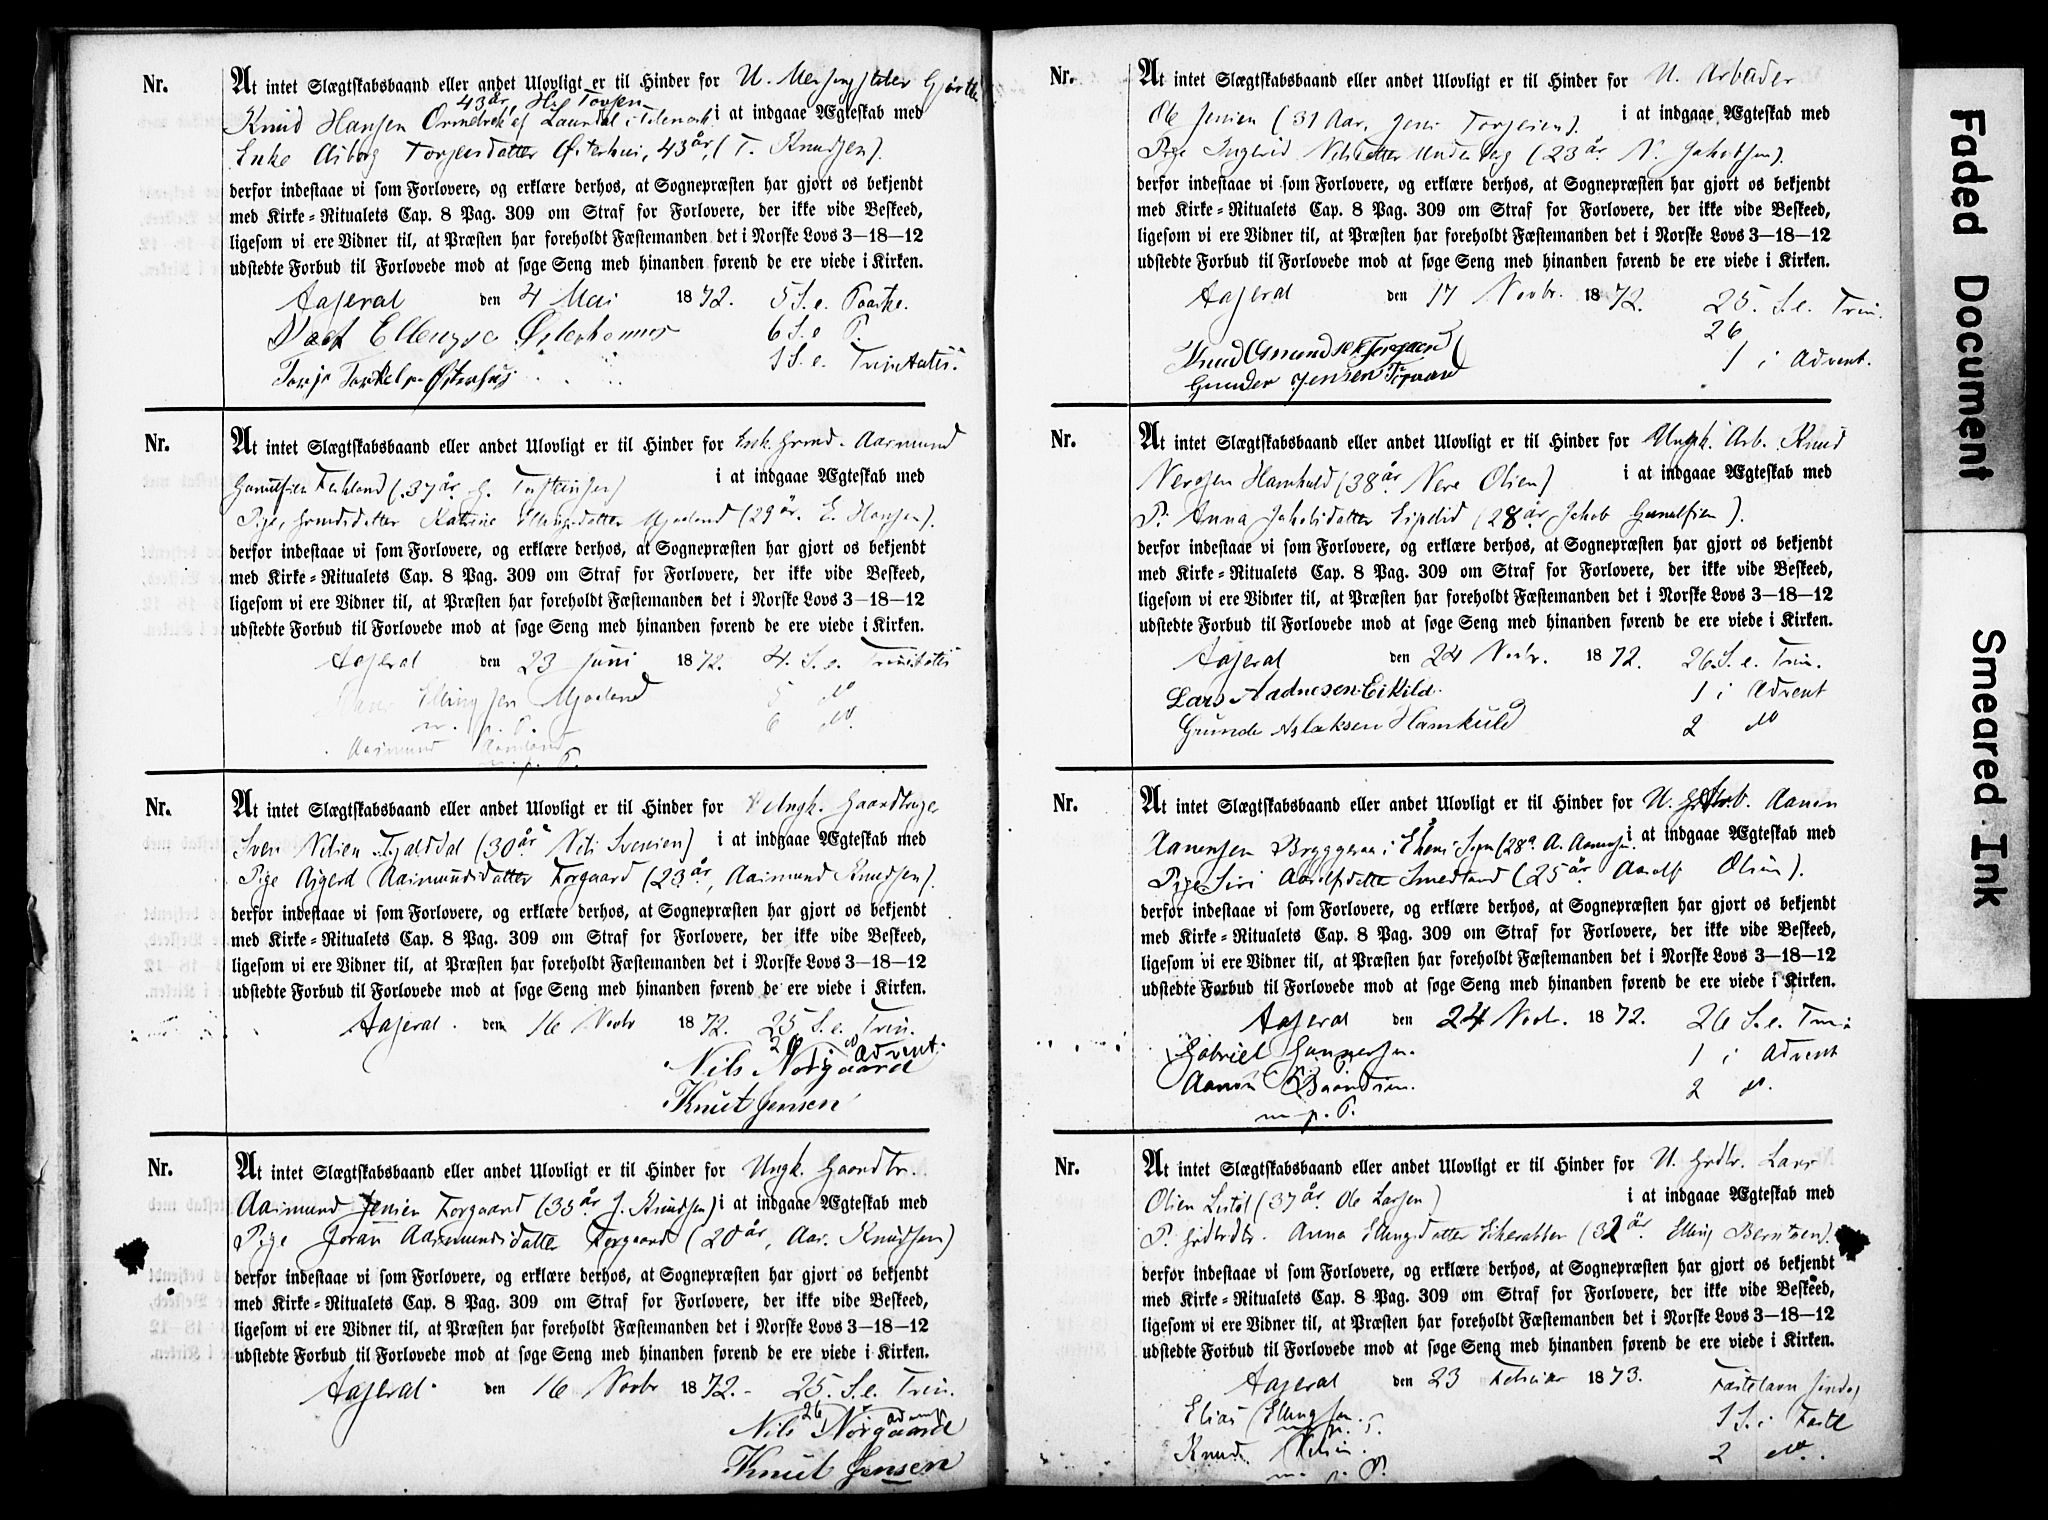 Nr.
At intet Slægtskabsbaand eller andet Ulovligt er til Hinder for U.
43 år
Knud Hansen i at indgaae Ægteskab med
Enke Asborg Torjersdatter Østerhus, 43 år, (T. Knudsen).
derfor indestaae vi som Forlovere, og erklære derhos, at Sognepræsten har gjort os bekjendt
med Kirke-Ritualets Cap. 8 Pag. 309 om Straf for Forlovere, der ikke vide Beskeed,
ligesom vi ere Vidner til, at Præsten har foreholdt Fæstemanden det i Norske Lovs 3—18—12
udstedte Forbud til Forlovede mod at søge Seng med hinanden førend de ere viede i Kirken.
Aaseral den 4 Mai 1872. 5 S. e. Paaske.
6 S. e. P.
1 S. e. Trinitatis
Nr.
At intet Slægtskabsbaand eller andet Ulovligt er til Hinder for Aasmund
(37 år. i at indgaae Ægteskab med
Pige, Grmdsdatter Katrine Ellingsdatter Mjaaland (29 år. E. Hansen).
derfor indestaae vi som Forlovere, og erklære derhos, at Sognepræsten har gjort os bekjendt
med Kirke-Ritualets Cap. 8 Pag. 309 om Straf for Forlovere, der ikke vide Beskeed,
ligesom vi ere Vidner til, at Præsten har foreholdt Fæstemanden det i Norske Lovs 3—18—12
udstedte Forbud til Forlovede mod at søge Seng med hinanden førend de ere viede i Kirken.
Aaseral den 23 Juni 1872. 4. S. e. Trinitatis
Ellingsen Mjaaland 5 do
m. p. P. 6 do.
Aasmund
m. p. P.
Nr.
At intet Slægtskabsbaand eller andet Ulovligt er til Hinder for Ungk. Gaardbruger
Sven Nilsen (30 år Nils Svensen) i at indgaae Ægteskab med
Pige Asgerd Aasmundsdatter Torgaard (23 år, Aasmund Knudsen).
derfor indestaae vi som Forlovere, og erklære derhos, at Sognepræsten har gjort os bekjendt
med Kirke-Ritualets Cap. 8 Pag. 309 om Straf for Forlovere, der ikke vide Beskeed,
ligesom vi ere Vidner til, at Præsten har foreholdt Fæstemanden det i Norske Lovs 3—18—12
udstedte Forbud til Forlovede mod at søge Seng med hinanden førend de ere viede i Kirken.
Aaseral. den 16 Novbr 1872. 25 S. e. Trin.
26 do
1 Advent.
Nils Norgaard
Knut Jensen
Nr.
At intet Slægtskabsbaand eller andet Ulovligt er til Hinder for Ungk. Gaardbr.
Aasmund Jensen Torgaard (35 år. J. Knudsen) i at indgaae Ægteskab med
Pige Joran Aasmundsdatter Torgaard (20 år, Aas. Knudsen)
derfor indestaae vi som Forlovere, og erklære derhos, at Sognepræsten har gjort os bekjendt
med Kirke-Ritualets Cap. 8 Pag. 309 om Straf for Forlovere, der ikke vide Beskeed,
ligesom vi ere Vidner til, at Præsten har foreholdt Fæstemanden det i Norske Lovs 3—18—12
udstedte Forbud til Forlovede mod at søge Seng med hinanden førend de ere viede i Kirken.
Aaseral. den 16 Novbr 1872. 25. S. e. Trin.
26
Nils Norgaard
Knut Jensen
Nr.
At intet Slægtskabsbaand eller andet Ulovligt er til Hinder for U. Arbeider
Ole Jensen (31 Aar, Jens Torgersen). i at indgaae Ægteskab med
Pige Ingerid Nilsdatter (23 år N. Jakobsen).
derfor indestaae vi som Forlovere, og erklære derhos, at Sognepræsten har gjort os bekjendt
med Kirke-Ritualets Cap. 8 Pag. 309 om Straf for Forlovere, der ikke vide Beskeed,
ligesom vi ere Vidner til, at Præsten har foreholdt Fæstemanden det i Norske Lovs 3—18—12
udstedte Forbud til Forlovede mod at søge Seng med hinanden førend de ere viede i Kirken.
Aaseral den 17 Novbr. 1872. 25. S. e. Trin.
26
1 i Advent.
Gunder Jensen
Nr.
At intet Slægtskabsbaand eller andet Ulovligt er til Hinder for Ungk. Arb. Knud
Hamkuld (38 år i at indgaae Ægteskab med
P. Anna Jakobsdatter (28 år Jakob Gunulfsen).
derfor indestaae vi som Forlovere, og erklære derhos, at Sognepræsten har gjort os bekjendt
med Kirke-Ritualets Cap. 8 Pag. 309 om Straf for Forlovere, der ikke vide Beskeed,
ligesom vi ere Vidner til, at Præsten har foreholdt Fæstemanden det i Norske Lovs 3—18—12
udstedte Forbud til Forlovede mod at søge Seng med hinanden førend de ere viede i Kirken.
Aaseral den 24 Novbr. 1872. 26. S. e. Trin.
Lars Aadnesen Eikild. 1 i Advent
Grunde Aslaksen Hamkuld 2 do
Nr.
At intet Slægtskabsbaand eller andet Ulovligt er til Hinder for U. Aanen
Aanensen i at indgaae Ægteskab med
Pige Siri Aasulfsdatter Smedland (25 år Aasulf Olsen).
derfor indestaae vi som Forlovere, og erklære derhos, at Sognepræsten har gjort os bekjendt
med Kirke-Ritualets Cap. 8 Pag. 309 om Straf for Forlovere, der ikke vide Beskeed,
ligesom vi ere Vidner til, at Præsten har foreholdt Fæstemanden det i Norske Lovs 3—18—12
udstedte Forbud til Forlovede mod at søge Seng med hinanden førend de ere viede i Kirken.
Aaseral den 24 Novbr. 1872. 26 S. e. Trin
Gabriel Gunnersen. 1 i Advent
Aanen 2 do.
m. p. P.
Nr.
At intet Slægtskabsbaand eller andet Ulovligt er til Hinder for U. Grdbr. Lars
Olsen (37 år. Ole Larsen) i at indgaae Ægteskab med
P. Grdbrdtr. Anna Ellingsdatter Eikerabben (32 år. Elling Berntsen).
derfor indestaae vi som Forlovere, og erklære derhos, at Sognepræsten har gjort os bekjendt
med Kirke-Ritualets Cap. 8 Pag. 309 om Straf for Forlovere, der ikke vide Beskeed,
ligesom vi ere Vidner til, at Præsten har foreholdt Fæstemanden det i Norske Lovs 3—18—12
udstedte Forbud til Forlovede mod at søge Seng med hinanden førend de ere viede i Kirken.
Aaseral den 23 Februar 1873. Fastelavn Søndag
Elias Ellingsen. 1 S. i Faste
m. p. P.
Knud 2 do.
m. p. P.
Faded Document
Smeared Ink